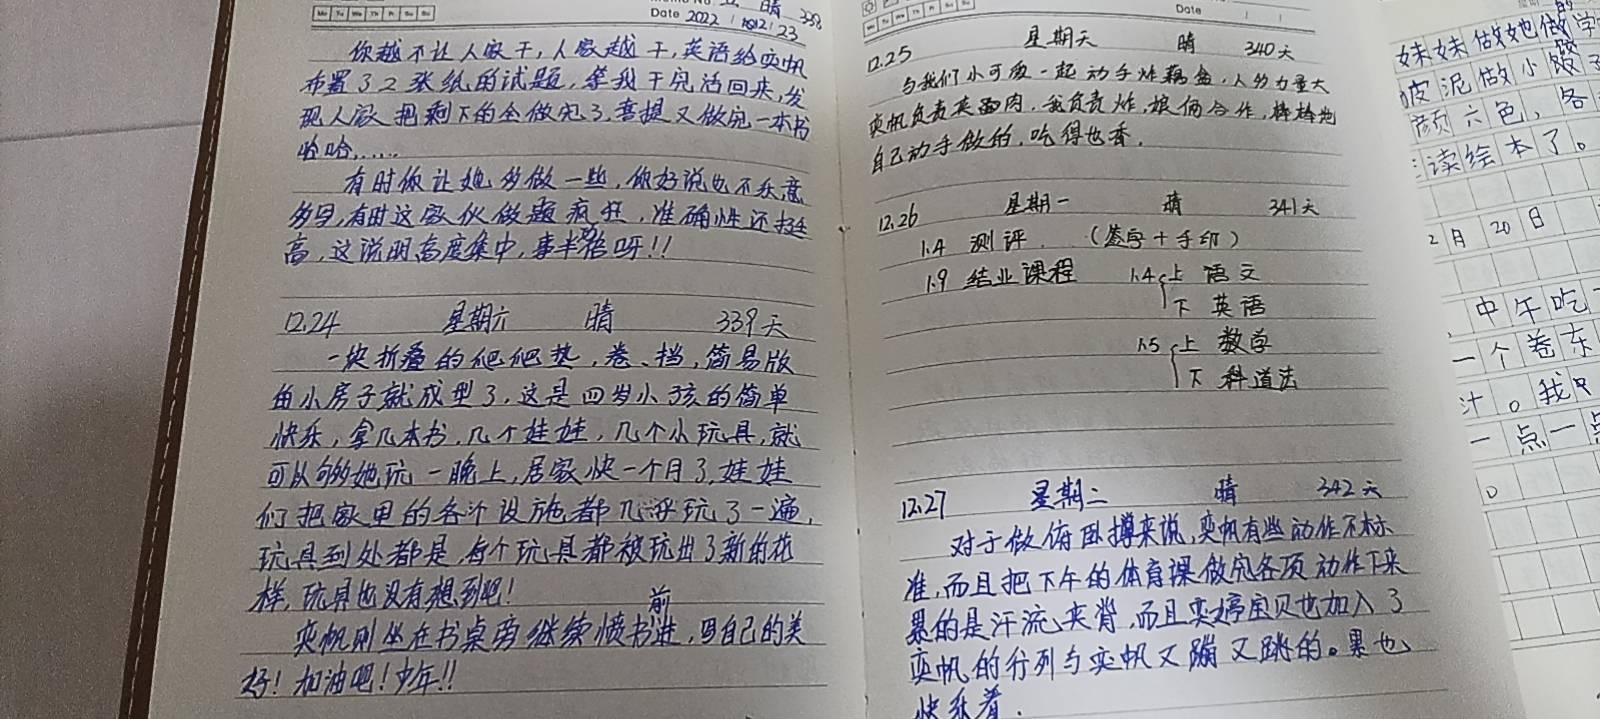 Mo Tu We Th Fr Sa Su
Memo No. 五 晴 338
Date 2022 / 12 / 23
你越不让人家干，人家越干，英语给奕帆
布置了2张纸的试题，等我干完活回来，发
现人家把剩下的全做完了，菩提又做完一本书
哈哈......
有时你让她多做一些，你好说也不乐意
多写，有时这家伙做题疯狂，准确性还挺
高，这说明高度集中，事半功倍呀!!
12.24 星期六 晴 339天
一块折叠的爬爬垫，卷、挡，简易版
的小房子就成型了，这是四岁小孩的简单
快乐，拿几本书，几个娃娃，几个小玩具，就
可以够她玩一晚上，居家快一个月了，娃娃
们把家里的各个设施都几乎玩了一遍，
玩具到处都是，每个玩具都被玩出了新的花
样，玩具也没有想到吧！
奕帆则坐在书桌旁继续愤书前进，写自己的美
好！加油吧！少年!!
Mo Tu We Th Fr Sa Su
Date / /
12.25 星期天 晴 340天
与我们小可爱一起动手炸藕盒，人多力量大
奕帆负责夹面肉，我负责炸，娘俩合作，棒棒哒
自己动手做的，吃得也香。
12.26 星期一 晴 341天
1.4 测评 （签字＋手印）
1.9 结业课程 1.4 上 语文
下 英语
1.5 上 数学
下 科道法
12.27 星期二 晴 342天
对于做俯卧撑来说，奕帆有些动作不标
准，而且把下午的体育课做完各项动作下来
累的是汗流夹背，而且奕婷宝贝也加入了
奕帆的行列与奕帆又蹦又跳的。累也
快乐着．
妹妹做她做学
皮泥做小饺子
颜六色，各
读绘本了。
2月20日
中午吃
一个卷东
汁。我只
一点一点
。